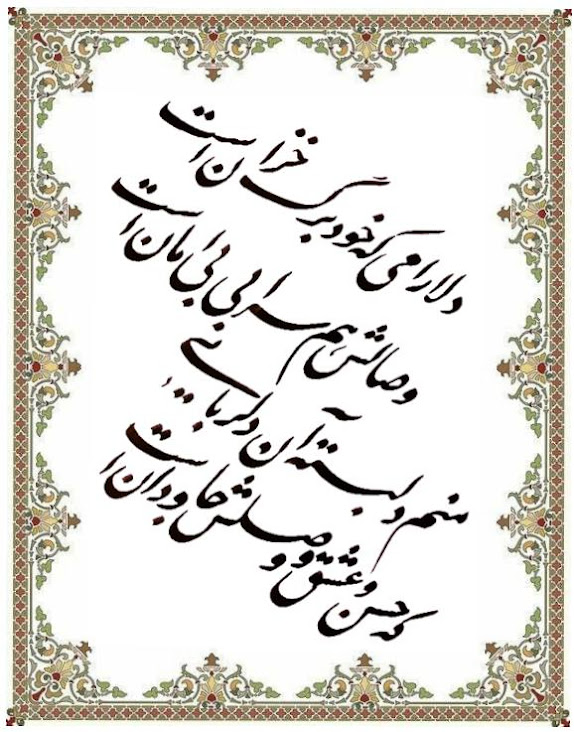 دلارامی که خود برگ خزان است
وصالش هم سرابی بی امان است
منم دلبسته آن دلربایی
که حسن و عشق و وصلش جاودان است